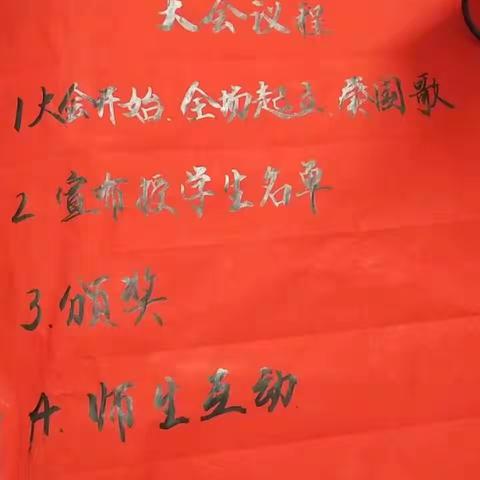 大会议程
1大会开始、全场起立、奏国歌
2 宣布授学生名单
3.颁奖
4.师生互动